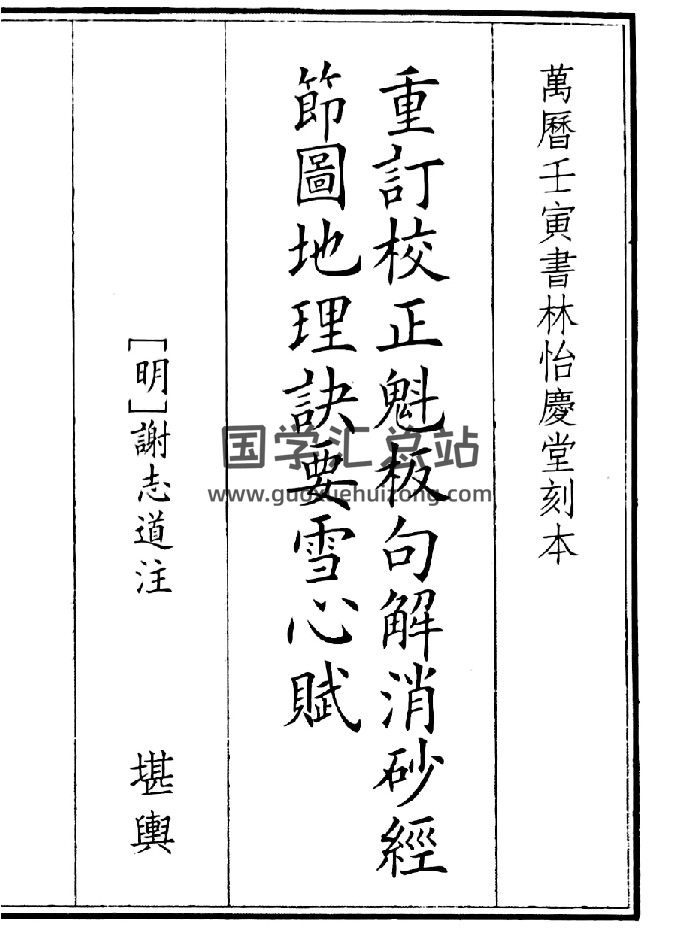 萬曆壬寅書林怡慶堂刻本
重訂校正魁板句解消砂經
節圖地理訣要雪心賦
[明]謝志道注
堪輿
国学汇总站
www.guoxuehuizong.com